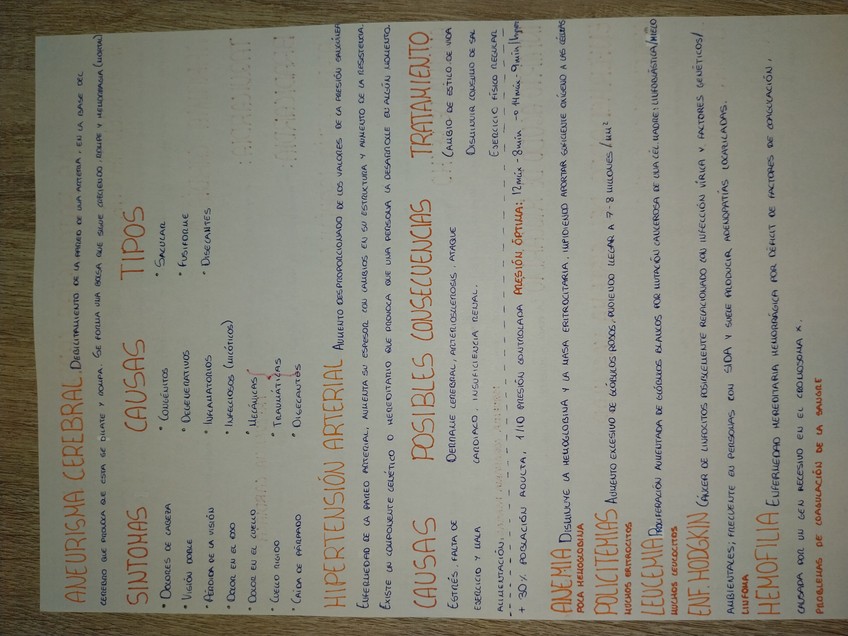 ANEURISMA CEREBRAL. DEBILITAMIENTO DE LA PARED DE UNA ARTERIA, EN LA BASE DEL
CEREBRO QUE PROVOCA QUE ESTA SE DILATE Y ROMPA. SE FORMA UNA BOLSA QUE SIGUE CRECIENDO, ROMPE Y HEMORRAGIA (MORTAL)
SINTOMAS
• DOLORES DE CABEZA
• VISIÓN DOBLE
• PÉRDIDA DE LA VISIÓN
• DOLOR EN EL OJO
• DOLOR EN EL CUELLO
• CUELLO RIGIDO
• CAÍDA DE PÁRPADO
CAUSAS
• CONGÉNITOS
• DEGENERATIVOS
• INFLAMATORIOS
• INFECCIOSOS (MICÓTICOS)
• MECÁNICAS
• TRAUMÁTICAS
• DISECANTES
TIPOS
• SACULAR
• FUSIFORME
• DISECANTES
HIPERTENSIÓN ARTERIAL AUMENTO DESPROPORCIONADO DE LOS VALORES DE LA PRESIÓN SANGUINEA
ENFERMEDAD DE LA PARED ARTERIAL, AUMENTA SU ESPESOR CON CAMBIOS EN SU ESTRUCTURA Y AUMENTO DE LA RESISTENCIA.
EXISTE UN COMPONENTE GENÉTICO O HEREDITARIO QUE PROVOCA QUE UNA PERSONA LA DESARROLLE EN ALGÚN MOMENTO.
CAUSAS
ESTRÉS, FALTA DE
EJERCICIO Y MALA
ALIMENTACIÓN.
POSIBLES CONSECUENCIAS
DERRAME CEREBRAL, ARTERIOSCLEROSIS, ATAQUE
CARDIACO, INSUFICIENCIA RENAL.
TRATAMIENTO
CAMBIO DE ESTILO DE VIDA
DISMINUIR CONSUMO DE SAL
EJERCICIO FÍSICO REGULAR
+ 30% POBLACIÓN ADULTA, 1/10 PRESIÓN CONTROLADA PRESIÓN ÓPTIMA: 12máx - 8mín → 14máx - 9mín/hiper
ANEMIA DISMINUYE LA HEMOGLOBINA Y LA MASA ERITROCITARIA, IMPIDIENDO APORTAR SUFICIENTE OXÍGENO A LAS CÉLULAS
POCA HEMOGLOBINA
POLICITEMIAS AUMENTO EXCESIVO DE GLÓBULOS ROJOS, PUDIENDO LLEGAR A 7-8 MILLONES/mm³
MUCHOS ERITROCITOS
LEUCEMIA PROLIFERACIÓN AUMENTADA DE GLÓBULOS BLANCOS POR MUTACIÓN CANCEROSA DE UNA CÉL MADRE: LINFOBLÁSTICA/MIELO
MUCHOS LEUCOCITOS
ENF. HODGKIN CÁNCER DE LINFOCITOS POSIBLEMENTE RELACIONADO CON INFECCIÓN VÍRICA Y FACTORES GENÉTICOS/
AMBIENTALES, FRECUENTE EN PERSONAS CON SIDA Y SUELE PRODUCIR ADENOPATÍAS LOCALIZADAS.
LINFOMA
HEMOFILIA ENFERMEDAD HEREDITARIA HEMORRÁGICA POR DÉFICIT DE FACTORES DE COAGULACIÓN,
CAUSADA POR UN GEN RECESIVO EN EL CROMOSOMA X.
PROBLEMAS DE COAGULACIÓN DE LA SANGRE